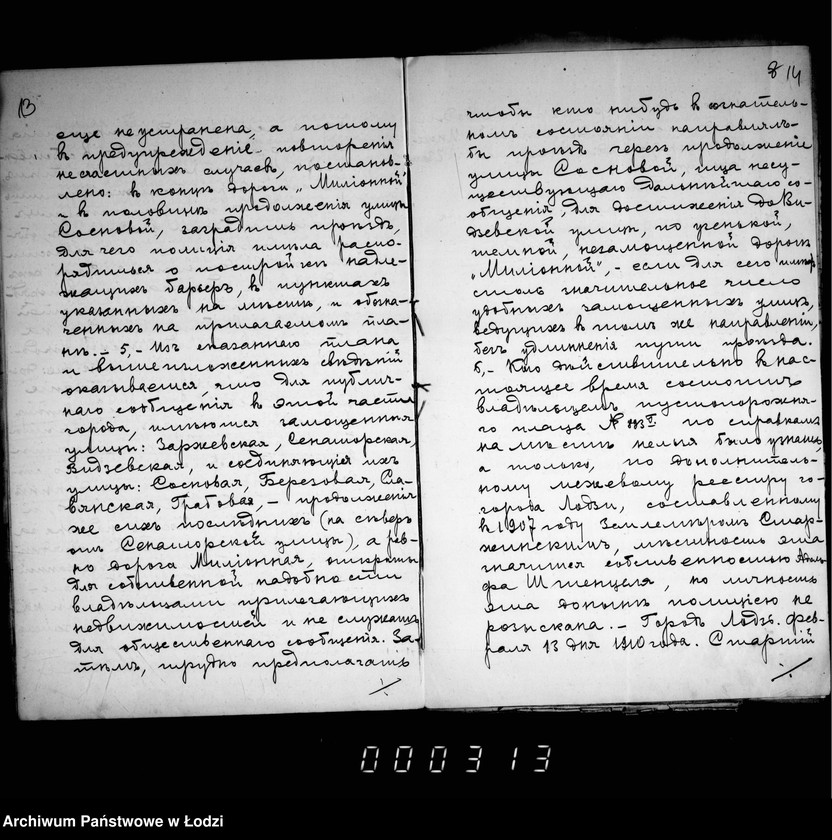 13
еще не устранена, а потому
въ предупрежденіе повторенія
несчастныхъ случаевъ, постанов-
лено: въ концѣ дороги „Миліонный"
и въ половинѣ продолженія улицы
Сосновой, заградить проѣздъ,
для чего полиція имѣла распо-
рядиться о постройкѣ надле-
жащихъ барьеръ, въ пунктахъ
указанныхъ на мѣстѣ, и обозна-
ченныхъ на прилагаемомъ пла-
нѣ. – 5, – Изъ сказаннаго плана
и вышеизложенныхъ свѣдѣній
оказывается, что для публич-
наго сообщенія въ этой части
города, имѣются замощенныя
улицы: Заржевская, Сенаторская,
Видзевская, и соединяющія ихъ
улицы: Сосновая, Березовая, Сла-
вянская, Грабовая, – продолженія
же сихъ послѣднихъ (на скверъ
отъ Сенаторской улицы), а рав-
но дорога Миліонная, открыты
для собственной надобности
владѣльцами прилегающихъ
недвижимостей и не служатъ
для общественнаго сообщенія. За-
тѣмъ, трудно предполагать
8 14
чтобы кто нибудь въ сознатель-
номъ состояніи направлялъ-
бы проѣздъ черезъ продолженіе
улицы Сосновой, ища несу-
ществующаго дальнѣйшаго со-
общенія, для достиженія до Ви-
дзевской улицы, по узенькой,
темной, незамощенной дорогѣ
„Миліонный", – если для сего имѣетъ
столь значительное число
удобныхъ замощенныхъ улицъ,
ведущихъ въ томъ же направленіи,
безъ удлиненія пути проѣзда.
6, – Кто дѣйствительно въ нас-
тоящее время состоитъ
владѣльцемъ пустопорожня-
го плаца № по справкамъ
на мѣстѣ нельзя было узнать,
а только, по дополнитель-
ному межевому реестру го-
города Лодзи, составленному
въ 1907 году Землемѣромъ Стар-
жинскимъ, мѣстность эта
значится собственностью Адоль-
фа Штенцеля, но личность
эта донынѣ полиціею не
розыскана. – Городъ Лодзь. фев-
раля 13 дня 1910 года. Старшій
000313
Archiwum Państwowe w Łodzi